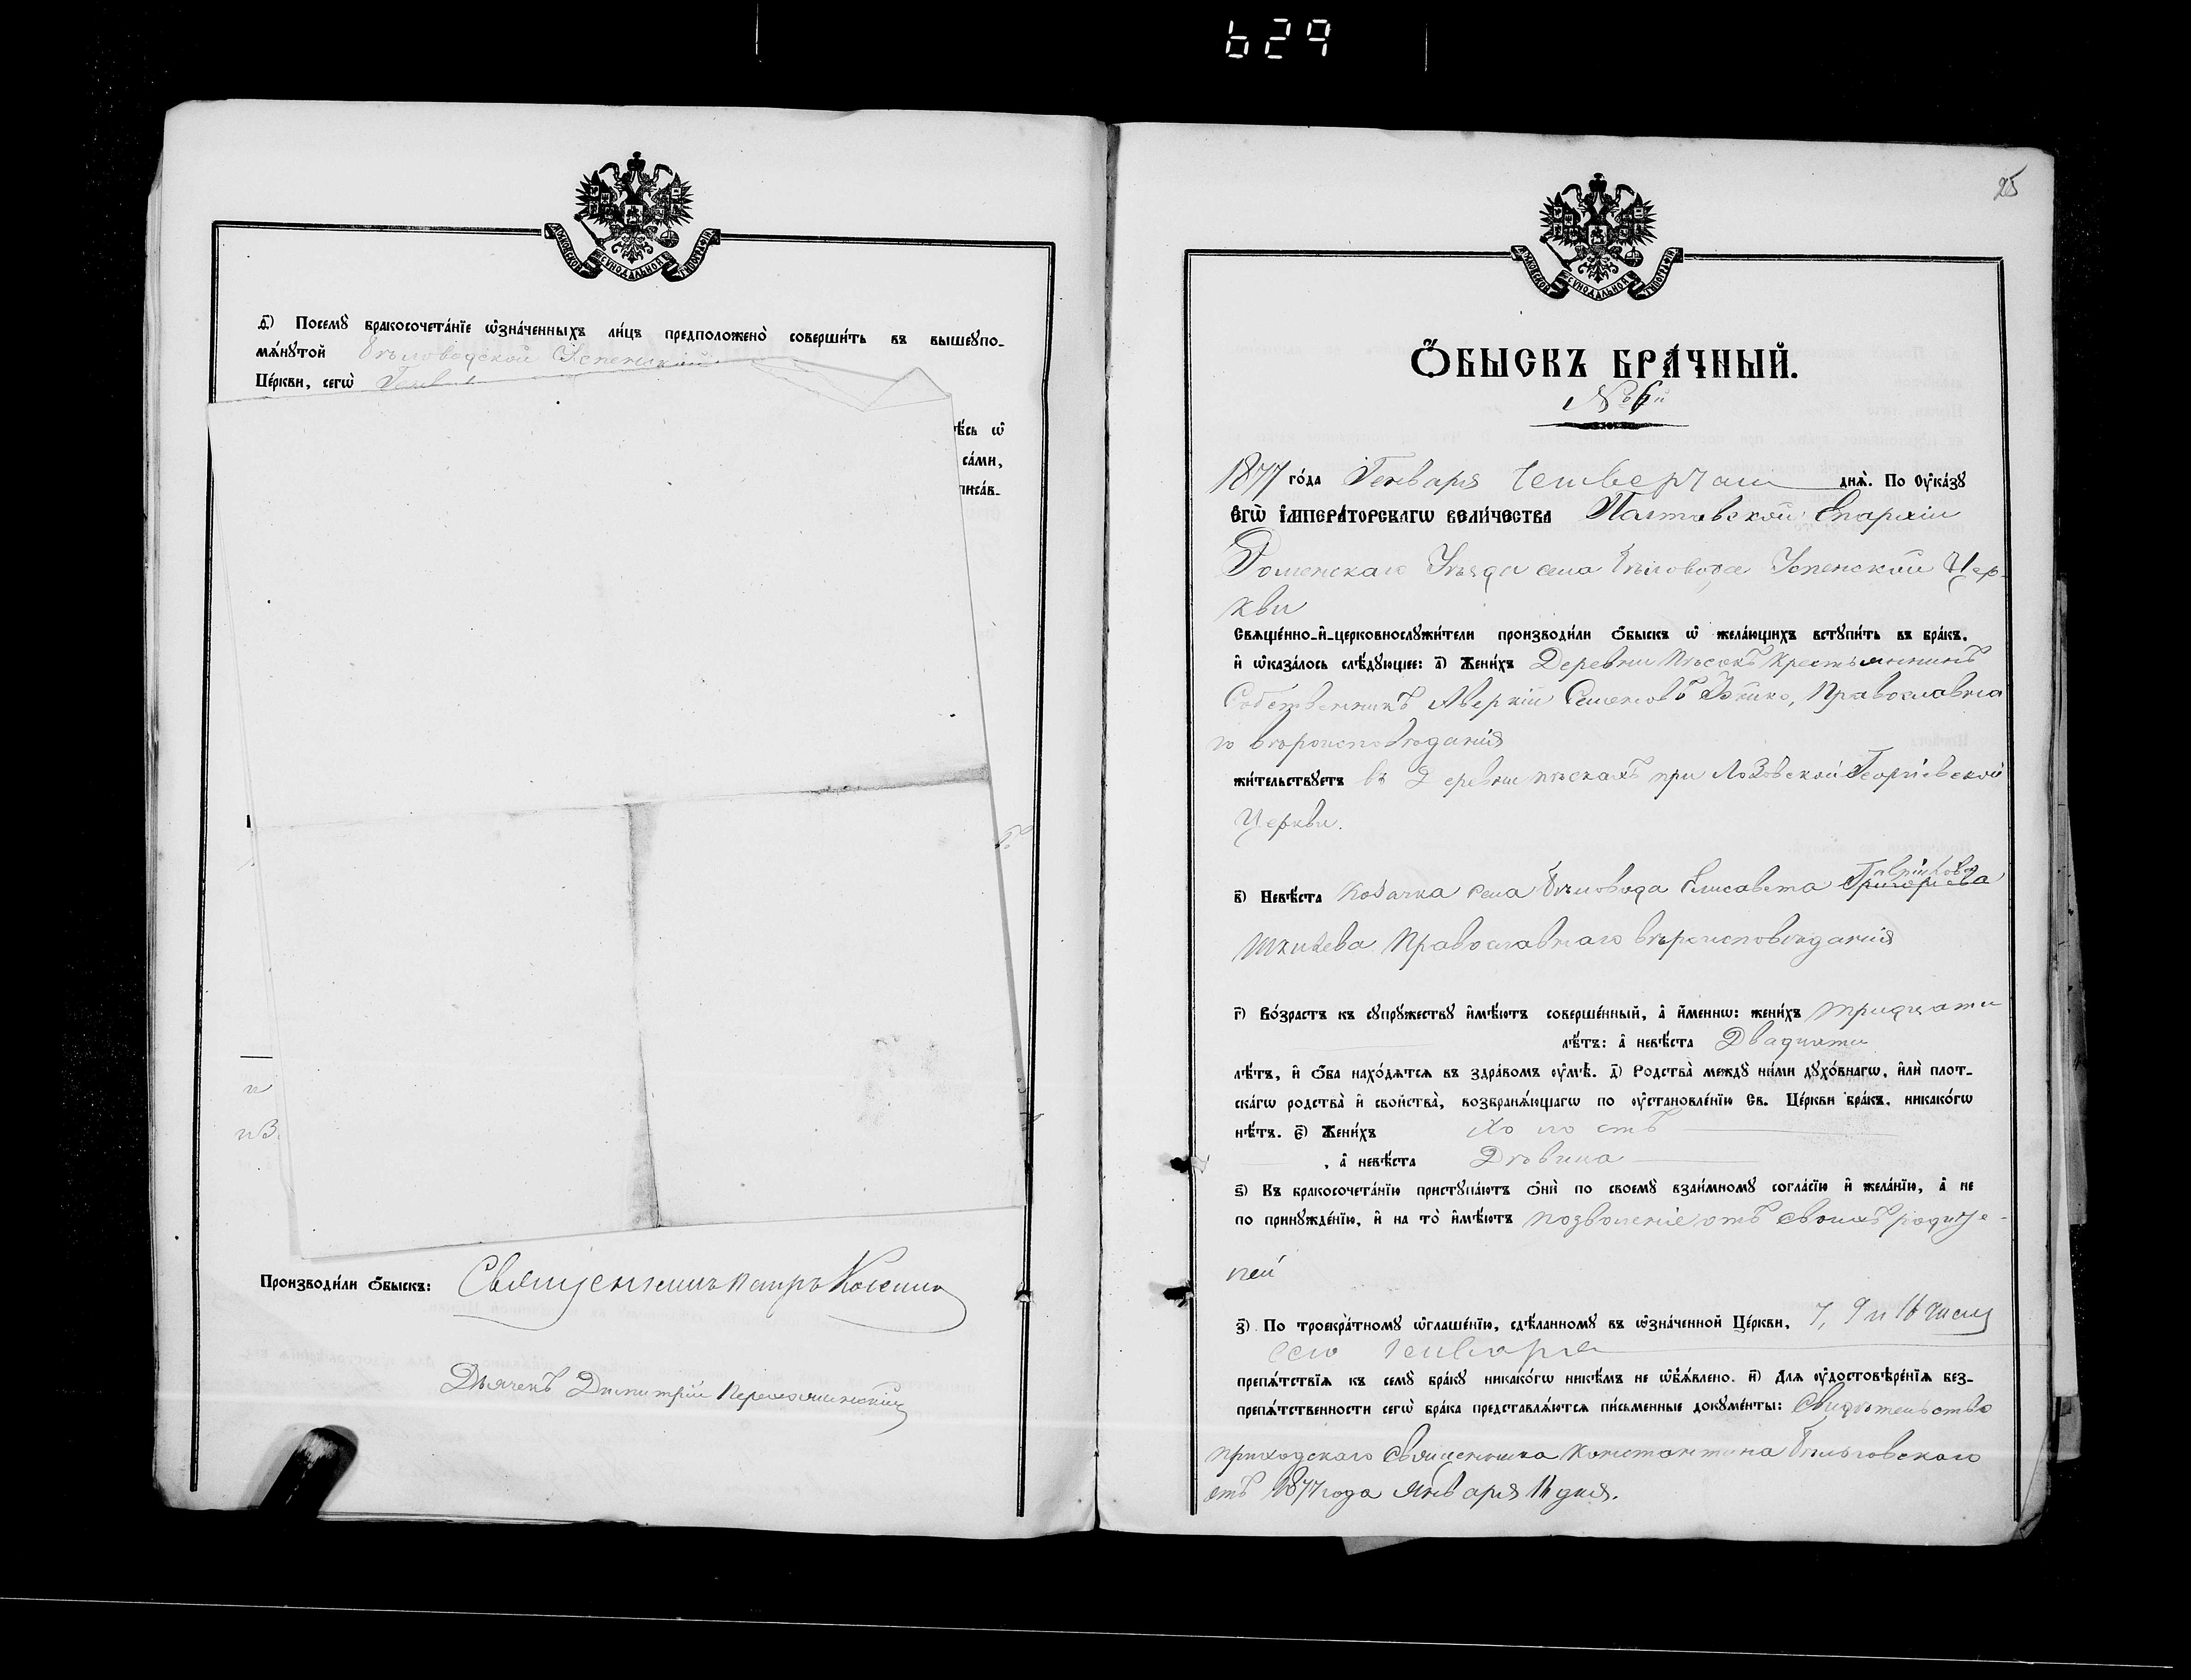 629
МОСКОВСКОЙ СѴНОДАЛЬНОЙ ТИПОГРАФІИ
д҃) Посемꙋ̀ бракосочета́нїе ѡ҆зна́ченныхъ ли́цъ предположено̀ соверши́ть въ вышеꙋпо-
мѧ́нꙋтой Бѣловодской Успенской
Це́ркви, сегѡ̀
ѣ́сь ѡ҆
са́ми,
писа́в-
Производи́ли ѻ҆́быскъ: Священникъ Петръ
Дьячекъ Димитрій
25
МОСКОВСКОЙ СѴНОДАЛЬНОЙ ТИПОГРАФІИ
Ѻ҆́БЫСКЪ БРА́ЧНЫЙ.
№ 6й
1877 го́да Генваря днѧ̀. По Оу҆ка́зꙋ
Є҆гѡ̀ И҆МПЕРА́ТОРСКАГѠ ВЕЛИ́ЧЕСТВА Полтавской Епархіи
Роменскаго Уѣзда села Бѣловода Успенской Цер-
кви
Свѧще́нно-и҆-церковнослꙋжи́тели производи́ли ѻ҆́быскъ ѡ҆ жела́ющихъ встꙋпи́ть въ бра́къ,
и҆ ѡ҆каза́лось слѣ́дꙋющее: а҃) Жени́хъ Деревни Пѣсокъ крестьянинъ
Собственникъ Аверкій Семеновъ Православна
го вѣроисповѣданія
жи́тельствꙋетъ въ Деревни пѣскахъ при Лозовской Георгіевской
Церкви.
в҃) Невѣ́ста Козачка села Бѣловода Елисавета Григоріева Гаврілова
Православнаго вѣроисповѣданія
г҃) Во́зрастъ къ сꙋпрꙋ́жествꙋ и҆мѣ́ютъ соверше́нный, а҆ и҆́меннѡ: жени́хъ тридцати
лѣ́тъ: а҆ невѣ́ста Двадцати
лѣ́тъ, и҆ ѻ҆́ба нахо́дѧтсѧ въ здра́вомъ ᲂу҆мѣ̀. д҃) Родства̀ междꙋ ни́ми дꙋхо́внагѡ, и҆лѝ плот-
ска́гѡ родства̀ и҆ сво́йства, возбранѧ́ющагѡ по ᲂу҆становле́нїю Св. Це́ркви бра́къ, никако́гѡ
нѣ́тъ. є҃) Жени́хъ Холостъ
, а҆ невѣ́ста Дѣвица
ѕ҃) Къ бракосочета́нїю пристꙋпа́ютъ ѻ҆нѝ по своемꙋ̀ взаи́мномꙋ согла́сїю и҆ жела́нїю, а҆ не
по принꙋжде́нїю, и҆ на то̀ и҆мѣ́ютъ позволеніе отъ своихъ родите-
лей
з҃) По троекра́тномꙋ ѡ҆глаше́нїю, сдѣ́ланномꙋ въ ѡ҆зна́ченной Це́ркви, 7, 9 и 16 числъ
сего Генваря
препѧ́тствїѧ къ семꙋ̀ бра́кꙋ никако́гѡ никѣ́мъ не ѡ҆б̾ѧ́влено. и҃) Длѧ ᲂу҆достовѣре́нїѧ без-
препѧ́тственности сегѡ̀ бра́ка представлѧ́ютсѧ пи́сьменные докꙋме́нты: Свидѣтельство
приходскаго Священника Константина
отъ 1877 года Января 16 дня.